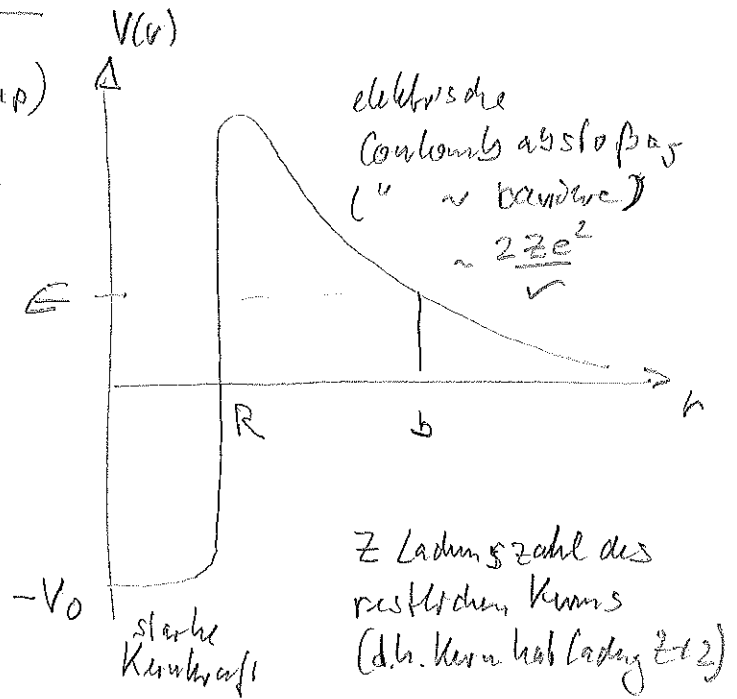 V(r)
elektrische
Coulombabstoßung
(" ~ barriere)
~ 2Ze²/r
E
R
b
r
-V₀
starke
Kernkraft
Z Ladungszahl des
restlichen Kerns
(d.h. Kern hat Ladung Z+2)